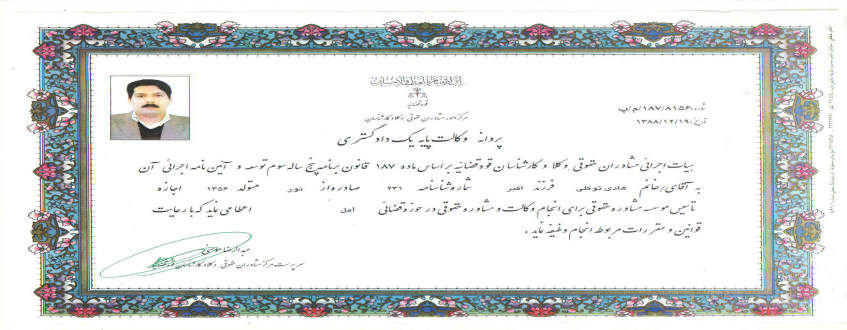 قوه قضائیه
مرکز امور مشاوران حقوقی، وکلا و کارشناسان
شماره: ۸۱۵۶/۱۸۷/م/پ
تاریخ: ۱۳۸۸/۱۲/۱۹
پروانه وکالت پایه یک دادگستری
هیات اجرائی مشاوران حقوقی، وکلا و کارشناسان قوه قضائیه بر اساس ماده ۱۸۷ قانون برنامه پنج ساله سوم توسعه و آئین نامه اجرائی آن
به آقای/خانم هادی توکلی فرزند اکبر شماره شناسنامه ۲۳۱ صادره از نور متولد ۱۳۵۶ اجازه
تاسیس موسسه مشاوره حقوقی برای انجام وکالت و مشاوره حقوقی در حوزه قضائی آمل اعطا می نماید که با رعایت
قوانین و مقررات مربوط انجام وظیفه نماید.
سرپرست مرکز مشاوران حقوقی، وکلا و کارشناسان قوه قضائیه